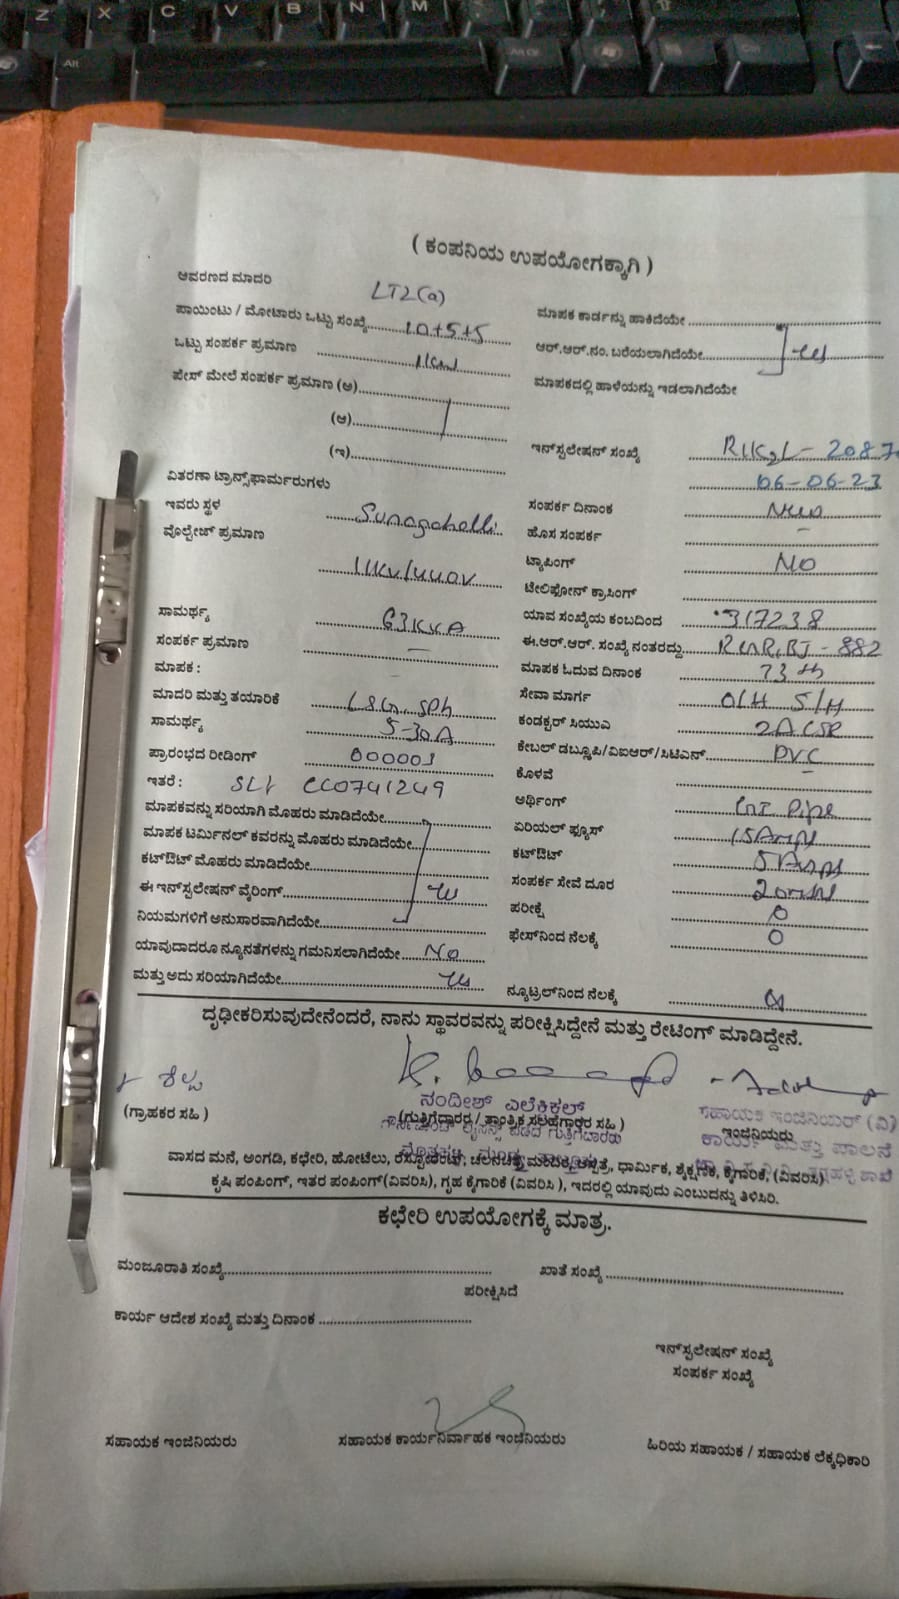 ( ಕಂಪನಿಯ ಉಪಯೋಗಕ್ಕಾಗಿ )
ಆವರಣದ ಮಾದರಿ LT2(a)
ಪಾಯಿಂಟು / ಮೋಟಾರು ಒಟ್ಟು ಸಂಖ್ಯೆ 10+5+5
ಮಾಪಕ ಕಾರ್ಡನ್ನು ಹಾಕಿದೆಯೇ
ಒಟ್ಟು ಸಂಪರ್ಕ ಪ್ರಮಾಣ 1KW
ಆರ್.ಆರ್.ನಂ. ಬರೆಯಲಾಗಿದೆಯೇ
ಫೇಸ್ ಮೇಲೆ ಸಂಪರ್ಕ ಪ್ರಮಾಣ (ಅ)
ಮಾಪಕದಲ್ಲಿ ಹಾಳೆಯನ್ನು ಇಡಲಾಗಿದೆಯೇ
(ಆ)
(ಇ)
ಇನ್‌ಸ್ಟಲೇಷನ್ ಸಂಖ್ಯೆ
ವಿತರಣಾ ಟ್ರಾನ್ಸ್‌ಫಾರ್ಮರುಗಳು
06-06-23
ಇವರು ಸ್ಥಳ
ಸಂಪರ್ಕ ದಿನಾಂಕ New
ವೊಲ್ಟೇಜ್ ಪ್ರಮಾಣ 11KV/440V
ಹೊಸ ಸಂಪರ್ಕ –
ಟ್ಯಾಪಿಂಗ್ NO
ಟೆಲಿಫೋನ್ ಕ್ರಾಸಿಂಗ್
ಸಾಮರ್ಥ್ಯ 63KVA
ಯಾವ ಸಂಖ್ಯೆಯ ಕಂಬದಿಂದ 317238
ಸಂಪರ್ಕ ಪ್ರಮಾಣ –
ಈ.ಆರ್.ಆರ್. ಸಂಖ್ಯೆ ನಂತರದ್ದು
ಮಾಪಕ :
ಮಾಪಕ ಓದುವ ದಿನಾಂಕ
ಮಾದರಿ ಮತ್ತು ತಯಾರಿಕೆ
ಸೇವಾ ಮಾರ್ಗ O/H S/H
ಸಾಮರ್ಥ್ಯ 5-30A
ಕಂಡಕ್ಟರ್ ಸಿಯುಎ
ಪ್ರಾರಂಭದ ರೀಡಿಂಗ್ 000001
ಕೇಬಲ್ ಡಬ್ಲ್ಯೂಪಿ/ವಿಐಆರ್/ಸಿಟಿಎಸ್ PVC
ಇತರೆ :
ಕೊಳವೆ –
ಮಾಪಕವನ್ನು ಸರಿಯಾಗಿ ಮೊಹರು ಮಾಡಿದೆಯೇ
ಅರ್ಥಿಂಗ್ G.I Pipe
ಮಾಪಕ ಟರ್ಮಿನಲ್ ಕವರನ್ನು ಮೊಹರು ಮಾಡಿದೆಯೇ
ಏರಿಯಲ್ ಫ್ಯೂಸ್ 15Amps
ಕಟ್‌ಔಟ್ ಮೊಹರು ಮಾಡಿದೆಯೇ
ಕಟ್‌ಔಟ್ 5 Amps
ಈ ಇನ್‌ಸ್ಟಲೇಷನ್ ವೈರಿಂಗ್
ಸಂಪರ್ಕ ಸೇವೆ ದೂರ
ನಿಯಮಗಳಿಗೆ ಅನುಸಾರವಾಗಿದೆಯೇ
ಪರೀಕ್ಷೆ 0
ಫೇಸ್‌ನಿಂದ ನೆಲಕ್ಕೆ 0
ಯಾವುದಾದರೂ ನ್ಯೂನತೆಗಳನ್ನು ಗಮನಿಸಲಾಗಿದೆಯೇ No
ಮತ್ತು ಅದು ಸರಿಯಾಗಿದೆಯೇ
ನ್ಯೂಟ್ರಲ್‌ನಿಂದ ನೆಲಕ್ಕೆ
ದೃಢೀಕರಿಸುವುದೇನೆಂದರೆ, ನಾನು ಸ್ಥಾವರವನ್ನು ಪರೀಕ್ಷಿಸಿದ್ದೇನೆ ಮತ್ತು ರೇಟಿಂಗ್ ಮಾಡಿದ್ದೇನೆ.
ನಂದೀಶ್ ಎಲೆಕ್ಟ್ರಿಕಲ್
ಸಹಾಯಕ ಇಂಜಿನಿಯರ್ (ವಿ)
(ಗ್ರಾಹಕರ ಸಹಿ )
(ಗುತ್ತಿಗೆದಾರರ / ತಾಂತ್ರಿಕ ಸಲಹೆಗಾರರ ಸಹಿ )
ಇಂಜಿನಿಯರು
ಕಾರ್ಯ ಮತ್ತು ಪಾಲನೆ
ವಾಸದ ಮನೆ, ಅಂಗಡಿ, ಕಛೇರಿ, ಹೋಟೆಲು, ರೆಸ್ಟೋರೆಂಟ್, ಚಲನಚಿತ್ರ ಮಂದಿರ, ಆಸ್ಪತ್ರೆ, ಧಾರ್ಮಿಕ, ಶೈಕ್ಷಣಿಕ, ಕೈಗಾರಿಕೆ, (ವಿವರಿಸಿ)
ಕೃಷಿ ಪಂಪಿಂಗ್, ಇತರ ಪಂಪಿಂಗ್(ವಿವರಿಸಿ), ಗೃಹ ಕೈಗಾರಿಕೆ (ವಿವರಿಸಿ ), ಇದರಲ್ಲಿ ಯಾವುದು ಎಂಬುದನ್ನು ತಿಳಿಸಿರಿ.
ಕಛೇರಿ ಉಪಯೋಗಕ್ಕೆ ಮಾತ್ರ.
ಮಂಜೂರಾತಿ ಸಂಖ್ಯೆ
ಖಾತೆ ಸಂಖ್ಯೆ
ಪರೀಕ್ಷಿಸಿದೆ
ಕಾರ್ಯ ಆದೇಶ ಸಂಖ್ಯೆ ಮತ್ತು ದಿನಾಂಕ
ಇನ್‌ಸ್ಟಲೇಷನ್ ಸಂಖ್ಯೆ
ಸಂಪರ್ಕ ಸಂಖ್ಯೆ
ಸಹಾಯಕ ಇಂಜಿನಿಯರು
ಸಹಾಯಕ ಕಾರ್ಯನಿರ್ವಾಹಕ ಇಂಜಿನಿಯರು
ಹಿರಿಯ ಸಹಾಯಕ / ಸಹಾಯಕ ಲೆಕ್ಕಾಧಿಕಾರಿ